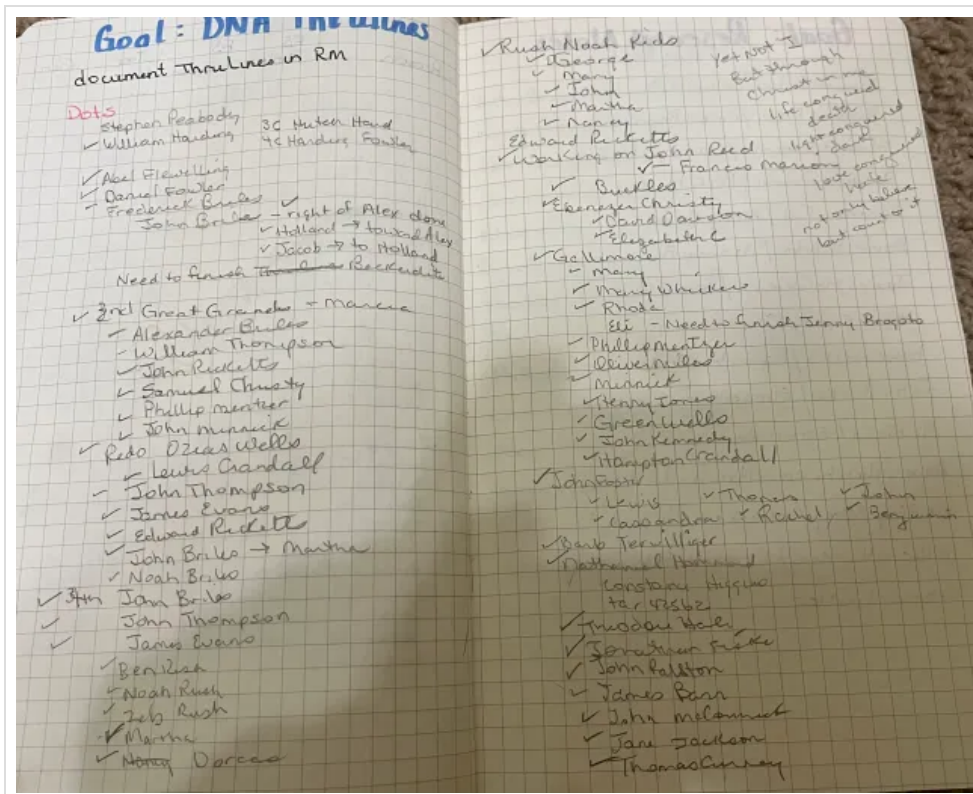 Goal: DNA ThruLines
document ThruLines in RM
Dots
Stephen Peabody
✓ William Harding 3C Hutch Hard
4C Harding Fowler
✓ Abel Flewelling
✓ Daniel Fowler
- Frederick Bribes ✓
John Briles - right of Alex done
✓ Holland → toward Alex
✓ Jacob → to Holland
Need to finish
✓ 2nd Great Grands - Marcia
- Alexander Briles
- William Thompson
✓ John Ricketts
✓ Samuel Christy
✓ Phillip mentzer
✓ John minnick
✓ Redo Ozias Wells
✓ Lewis Crandall
- John Thompson
✓ James Evans
✓ Edward Ricketts
✓ John Briles → Martha
✓ Noah Briles
✓ John Briles
✓ John Thompson
✓ James Evans
✓ Ben Rush
✓ Noah Rush
✓ Zeb Rush
✓ Martha
✓ Dorcas
✓ Rush Noah Kids
✓ George
✓ Mary
✓ John
✓ Martha
✓ Nancy
Edward Ricketts
✓ Working on John Reed
✓ Francis Marion
✓ Buckles
✓ Ebenezer Christy
✓ David Davison
✓ Elizabeth C
✓ Gallimore
- Mary
✓ Mary Whicker
✓ Rhoda
Eli - Need to finish Jenny
✓ Phillip mentzer
✓ Oliver miles
✓ Minnick
✓ Henry Jones
✓ Green Wells
✓ John Kennedy
✓ Hampton Crandall
✓ John
✓ Lewis ✓ Thomas ✓ John
✓ Cassandra ✓ Rachel ✓ Benjamin
✓ Barb Terwilliger
✓ Nathaniel
Constany Higgins
42562
✓ Theodore
✓ Jonathan
✓ John Ralston
✓ James Barr
✓ John McCormick
✓ Jane Jackson
✓ Thomas Curray
Yet Not I
But through
Christ in me
life conquered
death
light conquered
dark
love conquered
hate
not only believe
but count on it